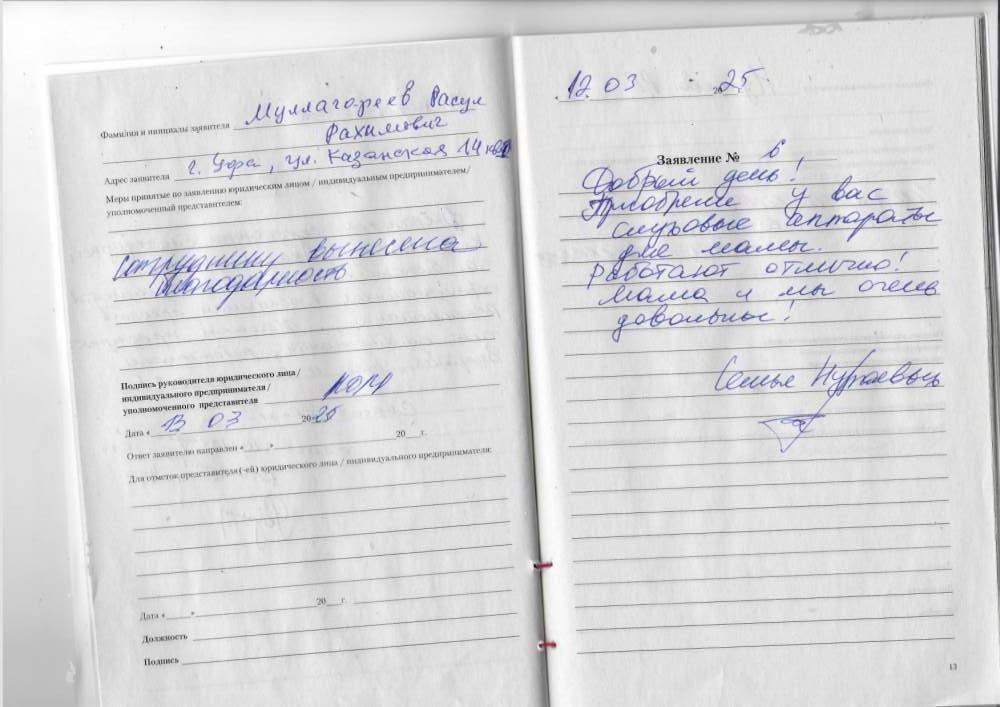 Фамилия и инициалы заявителя Муллагареев Расул
Рахимович
Адрес заявителя г. Уфа, ул. Казанская 14
Меры принятые по заявлению юридическим лицом / индивидуальным предпринимателем/
уполномоченный представителем:
сотруднику вынесена
благодарность
Подпись руководителя юридического лица /
индивидуального предпринимателя /
уполномоченного представителя
Дата « 13 03 2025
Ответ заявителю направлен «_____» 20___г.
Для отметок представителя (-ей) юридического лица / индивидуального предпринимателя:
Дата «_____» 20___г.
Должность
Подпись
12 03 2025 г.
Заявление № 6
Добрый день!
Приобрели у вас
слуховые аппараты
для мамы.
Работают отлично!
Мама и мы очень
довольны!
Семья
13